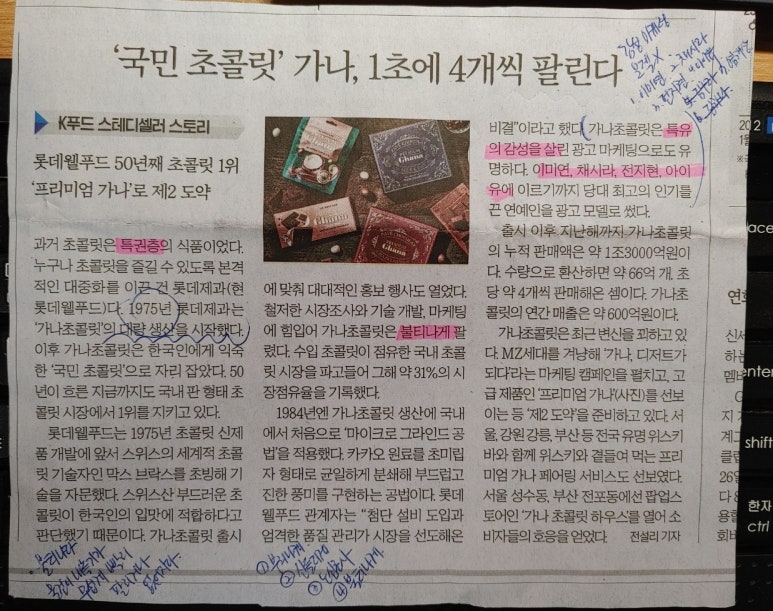 '국민 초콜릿' 가나, 1초에 4개씩 팔린다
K푸드 스테디셀러 스토리
롯데웰푸드 50년째 초콜릿 1위
'프리미엄 가나'로 제2 도약
과거 초콜릿은 특권층의 식품이었다.
누구나 초콜릿을 즐길 수 있도록 본격
적인 대중화를 이끈 건 롯데제과(현
롯데웰푸드)다. 1975년 롯데제과는
'가나초콜릿'의 대량 생산을 시작했다.
이후 가나초콜릿은 한국인에게 익숙
한 '국민 초콜릿'으로 자리 잡았다. 50
년이 흐른 지금까지도 국내 판 형태 초
콜릿 시장에서 1위를 지키고 있다.
롯데웰푸드는 1975년 초콜릿 신제
품 개발에 앞서 스위스의 세계적 초콜
릿 기술자인 막스 브락스를 초빙해 기
술을 자문했다. 스위스산 부드러운 초
콜릿이 한국인의 입맛에 적합하다고
판단했기 때문이다. 가나초콜릿 출시
Ghana
Ghana
Ghana
Ghana
에 맞춰 대대적인 홍보 행사도 열었다.
철저한 시장조사와 기술 개발, 마케팅
에 힘입어 가나초콜릿은 불티나게 팔
렸다. 수입 초콜릿이 점유한 국내 초콜
릿 시장을 파고들어 그해 약 31%의 시
장점유율을 기록했다.
1984년엔 가나초콜릿 생산에 국내
에서 처음으로 '마이크로 그라인드 공
법'을 적용했다. 카카오 원료를 초미립
자 형태로 균일하게 분쇄해 부드럽고
진한 풍미를 구현하는 공법이다. 롯데
웰푸드 관계자는 "첨단 설비 도입과
엄격한 품질 관리가 시장을 선도해온
비결"이라고 했다. 가나초콜릿은 특유
의 감성을 살린 광고 마케팅으로도 유
명하다. 이미연, 채시라, 전지현, 아이
유에 이르기까지 당대 최고의 인기를
끈 연예인을 광고 모델로 썼다.
출시 이후 지난해까지 가나초콜릿
의 누적 판매액은 약 1조3000억원이
다. 수량으로 환산하면 약 66억 개. 초
당 약 4개씩 판매해온 셈이다. 가나초
콜릿의 연간 매출은 약 600억원이다.
가나초콜릿은 최근 변신을 꾀하고 있
다. MZ세대를 겨냥해 '가나, 디저트가
되다'라는 마케팅 캠페인을 펼치고, 고
급 제품인 '프리미엄 가나'(사진)를 선보
이는 등 '제2 도약'을 준비하고 있다. 서
울, 강원 강릉, 부산 등 전국 유명 위스키
바와 함께 위스키와 곁들여 먹는 프리
미엄 가나 페어링 서비스도 선보였다.
서울 성수동, 부산 전포동에선 팝업스
토어인 '가나 초콜릿 하우스'를 열어 소
비자들의 호응을 얻었다.
전설리 기자
shift
한자
ctrl